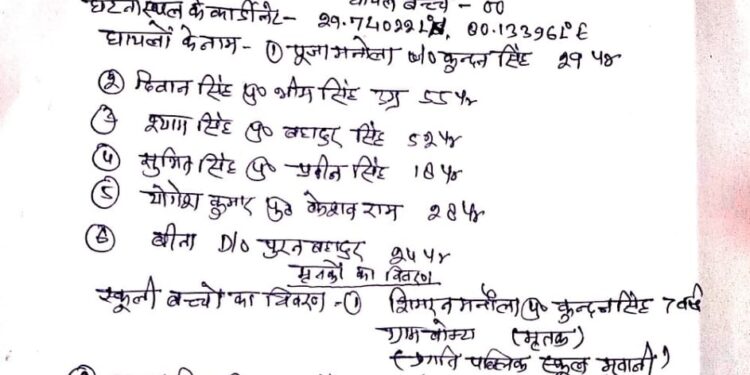 घायल बच्चे - 00
घटनास्थल के कार्डिनेट- 29.740221°N, 80.133961°E
घायलों के नाम - ① पूजा मनौला W/o कुन्दन सिंह 29 yr
② दिवान सिंह पु० भीम सिंह उम्र 55 yr
③ श्याम सिंह पु० बहादुर सिंह 52 yr
④ सुमित सिंह पु० प्रवीन सिंह 18 yr
⑤ योगेश कुमार पु० केशव राम 28 yr
⑥ बीता D/o पुरन बहादुर 24 yr
मृतकों का विवरण
स्कूली बच्चों का विवरण - ① सिमरन मनौला पु० कुन्दन सिंह 7 वर्ष
ग्राम बोक्टा (मृतक)
(प्रगति पब्लिक स्कूल मुवानी)